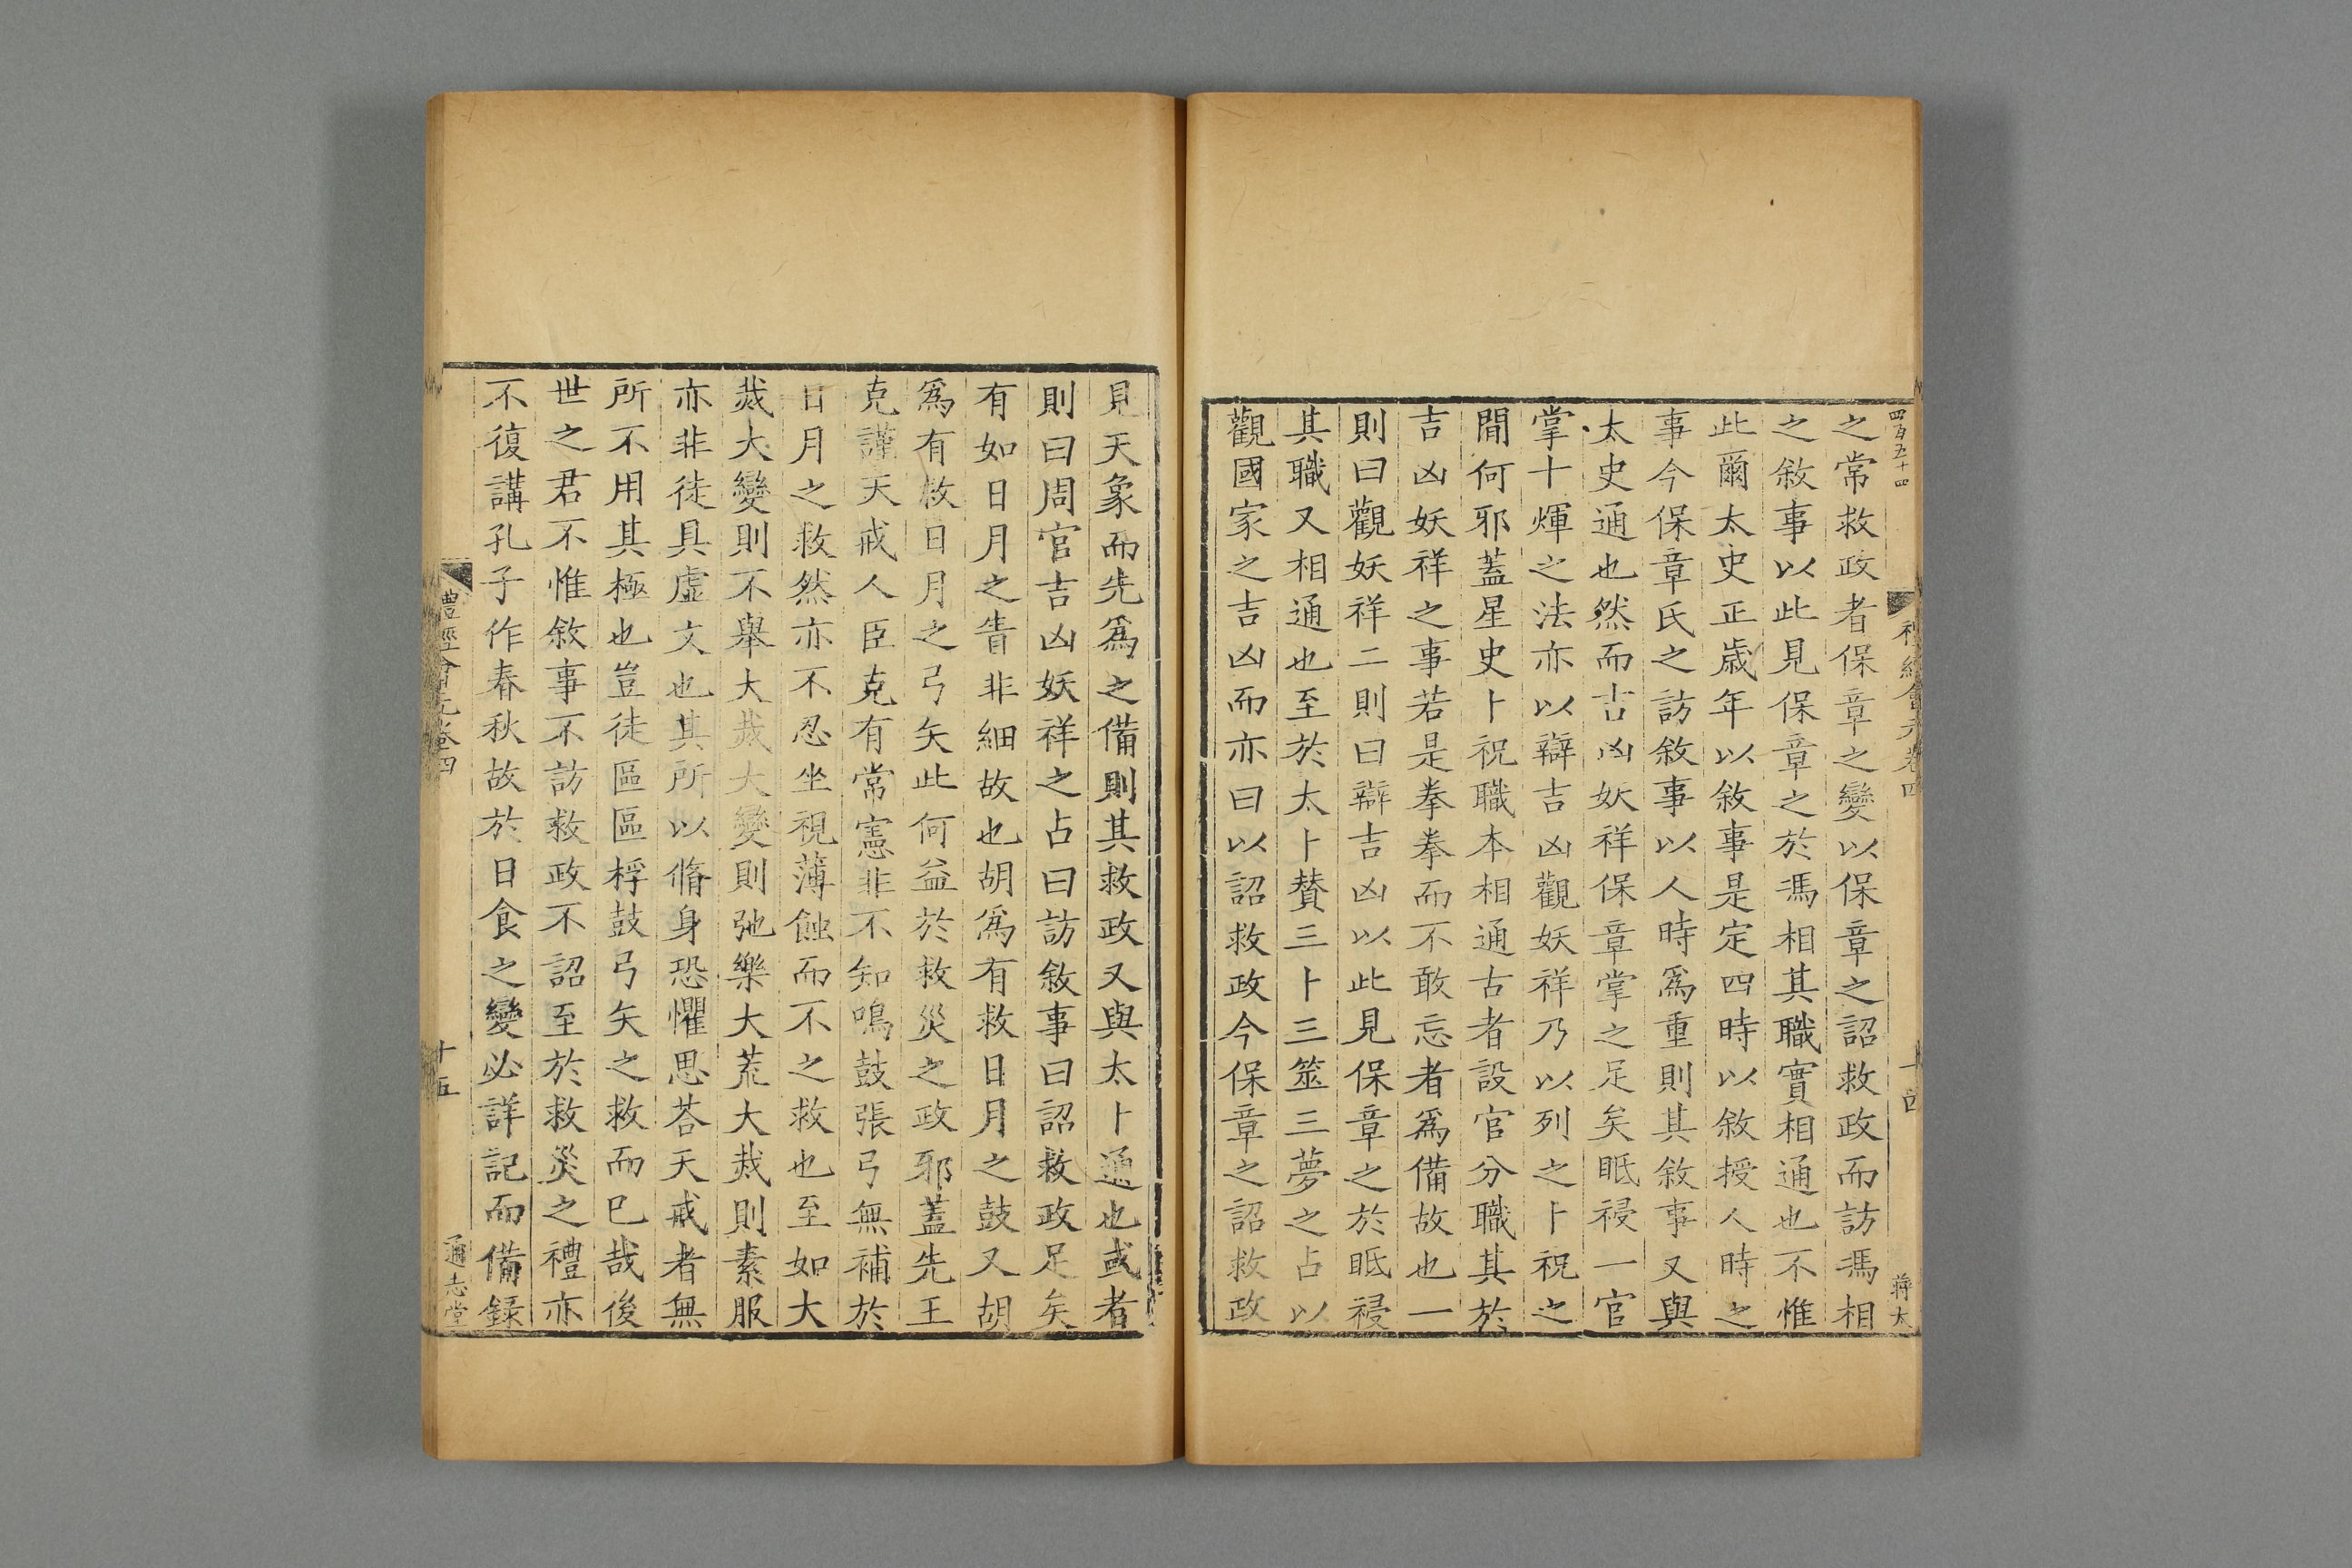 四百五十四
禮經會元卷四
十四
蔣太
之常救政者保章之變以保章之詔救政而訪馮相
之敘事以此見保章之於馮相其職實相通也不惟
此爾太史正歲年以敘事是定四時以敘授人時之
事今保章氏之訪敘事以人時爲重則其敘事又與
太史通也然而吉凶妖祥保章掌之足矣眂祲一官
掌十煇之法亦以辯吉凶觀妖祥乃以列之卜祝之
閒何邪蓋星史卜祝職本相通古者設官分職其於
吉凶妖祥之事若是拳拳而不敢忘者爲備故也一
則曰觀妖祥二則曰辯吉凶以此見保章之於眂祲
其職又相通也至於太卜賛三卜三筮三夢之占以
觀國家之吉凶而亦曰以詔救政今保章之詔救政
見天象而先爲之備則其救政又與太卜通也或者
則曰周官吉凶妖祥之占曰訪敘事曰詔救政足矣
有如日月之眚非細故也胡爲有救日月之鼓又胡
爲有救日月之弓矢此何益於救災之政邪蓋先王
克謹天戒人臣克有常憲非不知鳴鼓張弓無補於
日月之救然亦不忍坐視薄蝕而不之救也至如大
烖大變則不舉大烖大變則弛樂大荒大烖則素服
亦非徒具虛文也其所以脩身恐懼思荅天戒者無
所不用其極也豈徒區區桴鼓弓矢之救而巳哉後
世之君不惟敘事不訪救政不詔至於救災之禮亦
不復講孔子作春秋故於日食之變必詳記而備録
禮經會元卷四
十五
通志堂